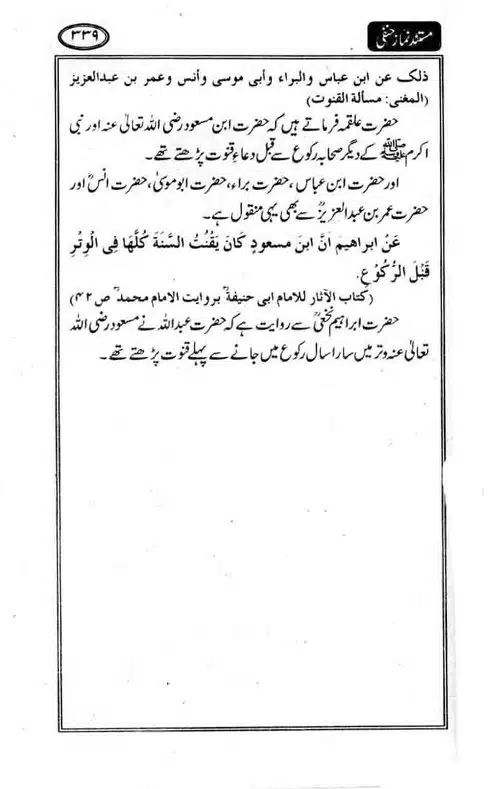 مستند نماز حنفی
۳۳۹
ذلک عن ابن عباس والبراء وأبی موسی وأنس وعمر بن عبدالعزیز
(المغنی: مسألة القنوت)
حضرت علقمہ فرماتے ہیں کہ حضرت ابن مسعود رضی اللہ تعالیٰ عنہ اور نبی
اکرم ﷺ کے دیگر صحابہ رکوع سے قبل دعاءِ قنوت پڑھتے تھے۔
اور حضرت ابن عباس، حضرت براء، حضرت ابو موسیٰ، حضرت انسؓ اور
حضرت عمر بن عبد العزیزؒ سے بھی یہی منقول ہے۔
عَنْ ابراهیم اَنَّ ابنَ مسعودٍ کَانَ یَقْنُتُ السَّنَةَ کُلَّهَا فِی الْوِتْرِ
قَبْلَ الرُّکُوْعِ.
(کتاب الآثار للامام ابی حنیفةؒ بروایت الامام محمدؒ ص ۴۲)
حضرت ابراہیم نخعیؒ سے روایت ہے کہ حضرت عبد اللہ نے مسعود رضی اللہ
تعالیٰ عنہ وتر میں سارا سال رکوع میں جانے سے پہلے قنوت پڑھتے تھے۔